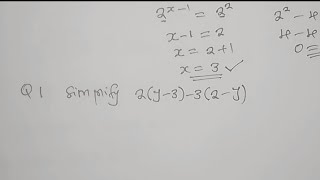 2^(x-1) = 3^2
x-1 = 2
x = 2+1
x = 3 ✓
2^2 - 4
4 - 4
0 =
Q1 Simplify 2(y-3)-3(2-y)